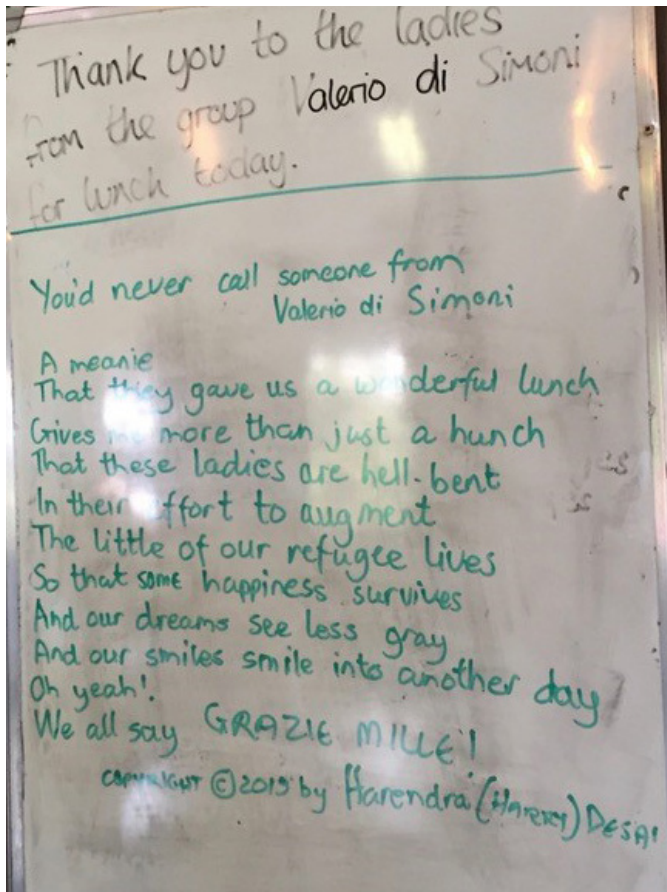 Thank you to the ladies
from the group Valerio di Simoni
for lunch today.
You'd never call someone from
Valerio di Simoni
A meanie
That they gave us a wonderful lunch
Gives me more than just a hunch
That these ladies are hell-bent
In their effort to augment
The little of our refugee lives
So that some happiness survives
And our dreams see less gray
And our smiles smile into another day
Oh yeah!
We all say GRAZIE MILLE!
COPYRIGHT © 2015 by Harendra (HARRY) DESAI